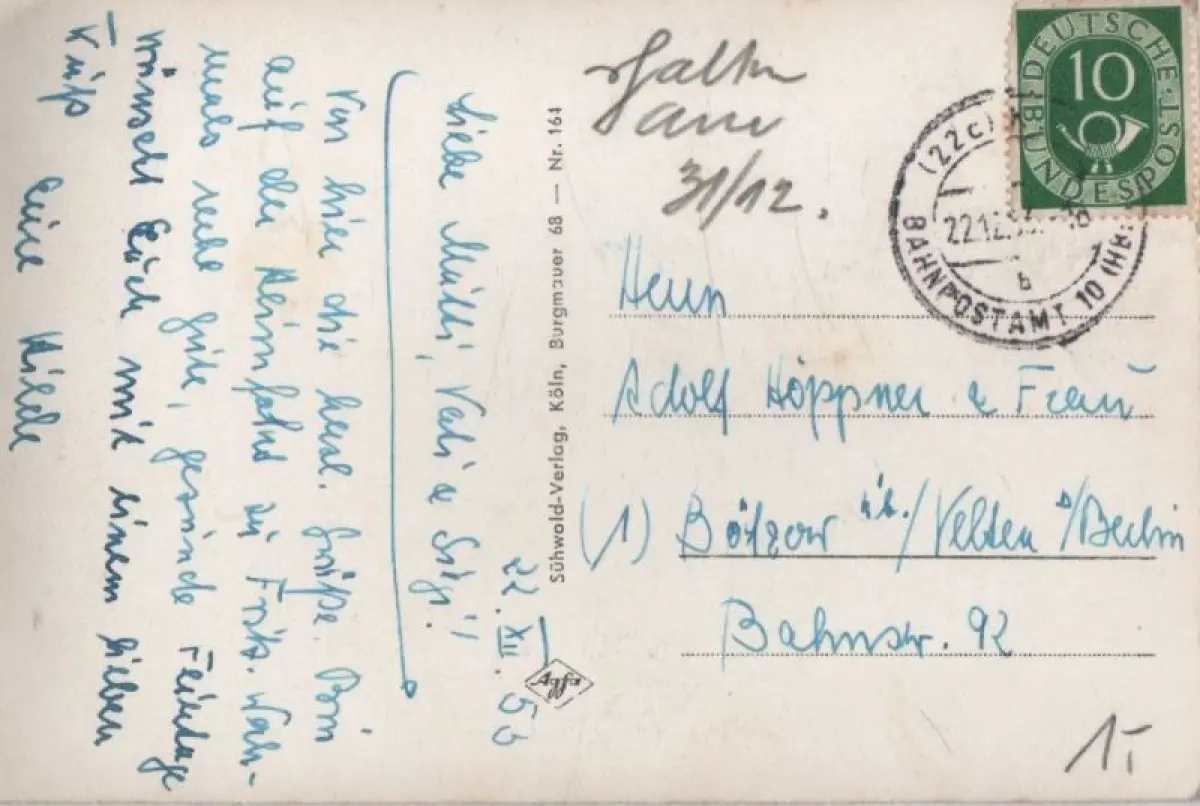 22. XII. 53
Liebe Mutti, Vati u Sigi!
Von hier die herzl. Grüße. Bin
auf der Heimfahrt zu Frkf.
mals recht gute, gesunde Feiertage
wünscht Euch mit einem lieben
Kuß
Eure Hilde
Sühwold-Verlag, Köln, Burgmauer 68 — Nr. 161
Agfa
erhalten
am
31/12.
DEUTSCHE BUNDESPOST
10
(22c)
22.12.53.
b
BAHNPOSTAMT 10 (HBF
Herrn
Adolf Höppner u Frau
(1) Bötzow üb./Velten b/Berlin
Bahnstr. 92
1,-